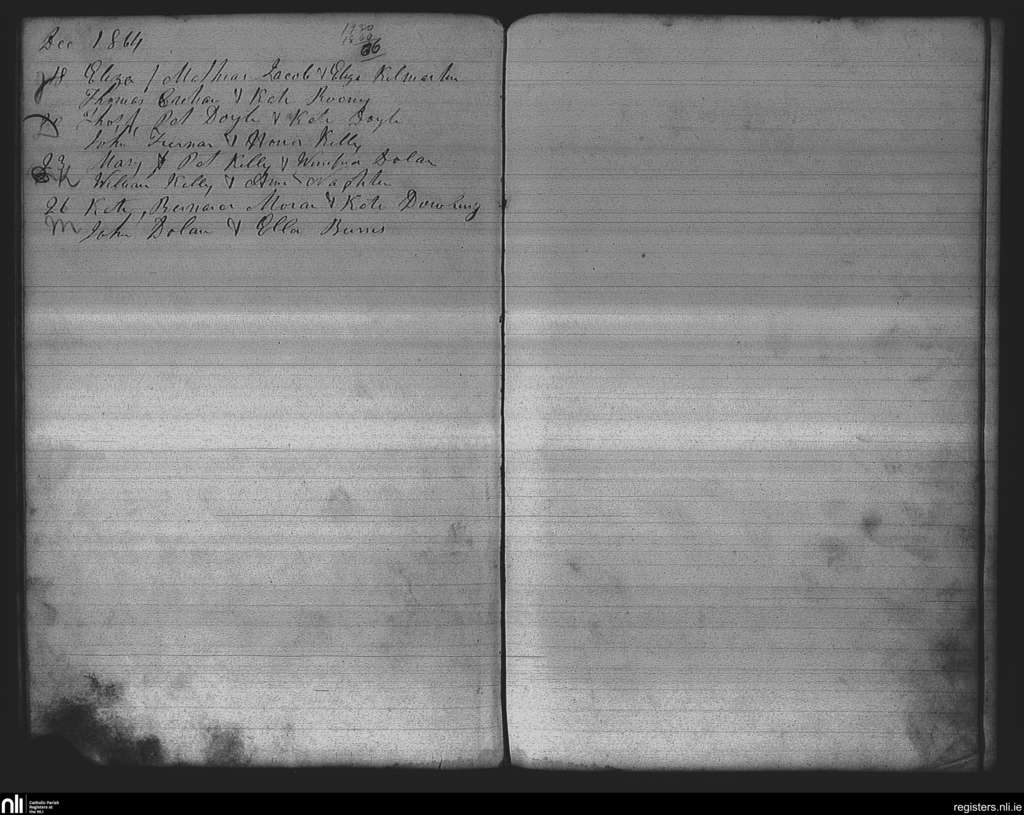 Dec 1864
1930
1866
66
18 Eliza / Mathias Jacob & Eliza Kilmartin
J Thomas Crehan & Kate Roony
20 Pat Doyle & Kate Doyle
D John Tiernan & Honor Kelly
23 Mary / Pat Kelly & Winifred Dolan
K William Kelly & Anne Naghten
26 Kate, Bernard Moran & Kate Dowling
M John Dolan & Ella Burns
nli
Catholic Parish
Registers at
the NLI
registers.nli.ie